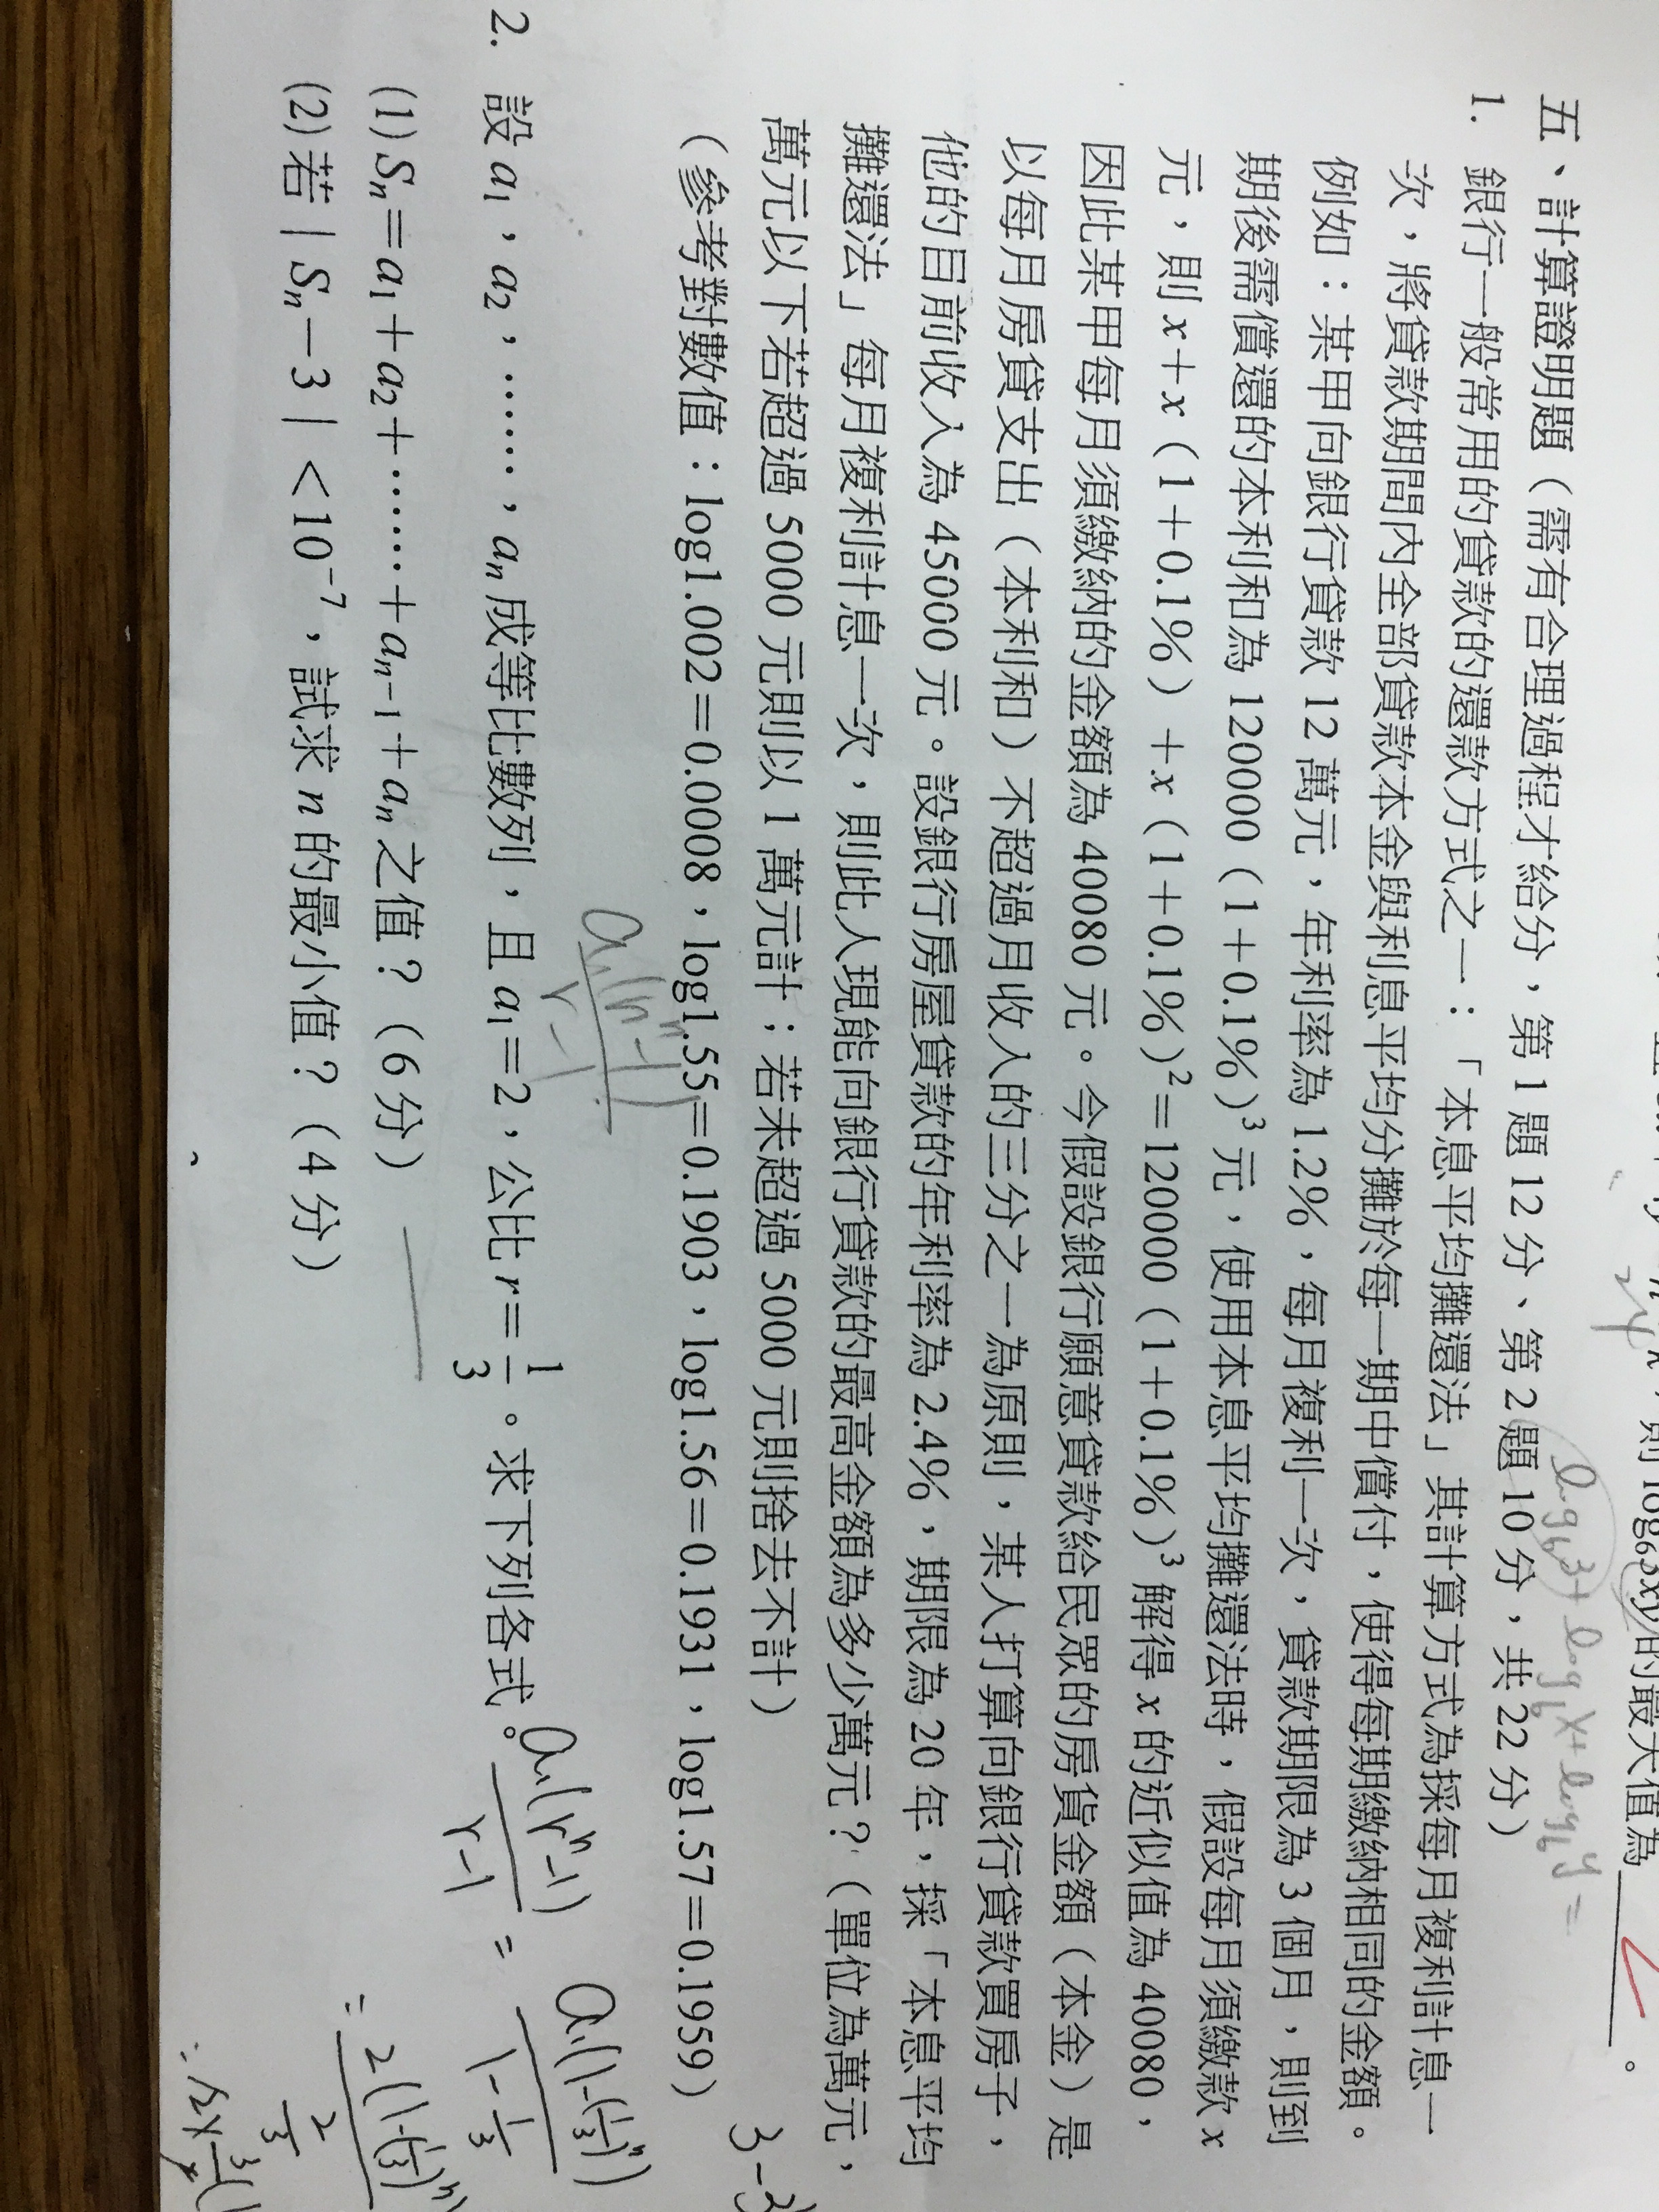 則 log₆3xy的最大值為 。
log₆3+log₆x+log₆y=
五、計算證明題（需有合理過程才給分，第 1 題 12 分、第 2 題 10 分，共 22 分）
1. 銀行一般常用的貸款的還款方式之一：「本息平均攤還法」其計算方式為採每月複利計息一
次，將貸款期間內全部貸款本金與利息平均分攤於每一期中償付，使得每期繳納相同的金額。
例如：某甲向銀行貸款 12 萬元，年利率為 1.2%，每月複利一次，貸款期限為 3 個月，則到
期後需償還的本利和為 120000（1＋0.1%）³元，使用本息平均攤還法時，假設每月須繳款 x
元，則 x＋x（1＋0.1%）＋x（1＋0.1%）²＝120000（1＋0.1%）³ 解得 x 的近似值為 40080，
因此某甲每月須繳納的金額為 40080 元。今假設銀行願意貸款給民眾的房貸金額（本金）是
以每月房貸支出（本利和）不超過月收入的三分之一為原則，某人打算向銀行貸款買房子，
他的目前收入為 45000 元。設銀行房屋貸款的年利率為 2.4%，期限為 20 年，採「本息平均
攤還法」每月複利計息一次，則此人現能向銀行貸款的最高金額為多少萬元？（單位為萬元，
萬元以下若超過 5000 元則以 1 萬元計；若未超過 5000 元則捨去不計）
（參考對數值：log1.002＝0.0008，log1.55＝0.1903，log1.56＝0.1931，log1.57＝0.1959）
2. 設 a₁，a₂，……，aₙ成等比數列，且 a₁＝2，公比 r＝1/3。求下列各式。
a₁(rⁿ-1)/(r-1) = a₁(1-(1/3)ⁿ)/(1-1/3)
(1) Sₙ＝a₁＋a₂＋……＋aₙ₋₁＋aₙ 之值？（6 分）
= 2(1-(1/3)ⁿ)/(2/3)
(2) 若｜Sₙ－3｜＜10⁻⁷，試求 n 的最小值？（4 分）